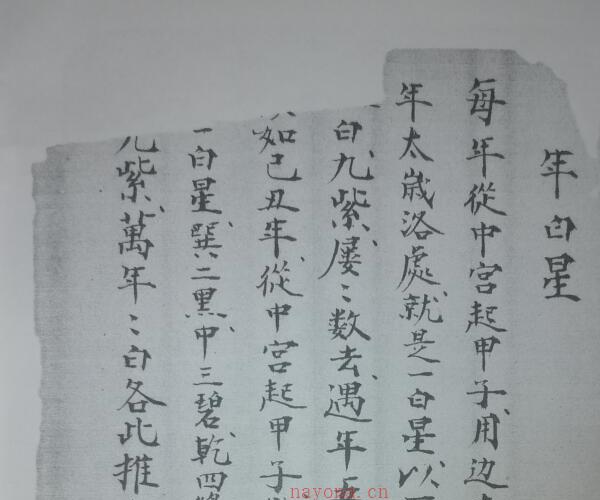 年白星
每年從中宮起甲子用边
年太歲洛處就是一白星以
白九紫屡〻数去遇年
如己丑年從中宮起甲子
一白星巽二黑中三碧乾四
九紫萬年〻白各此推
nayona.cn